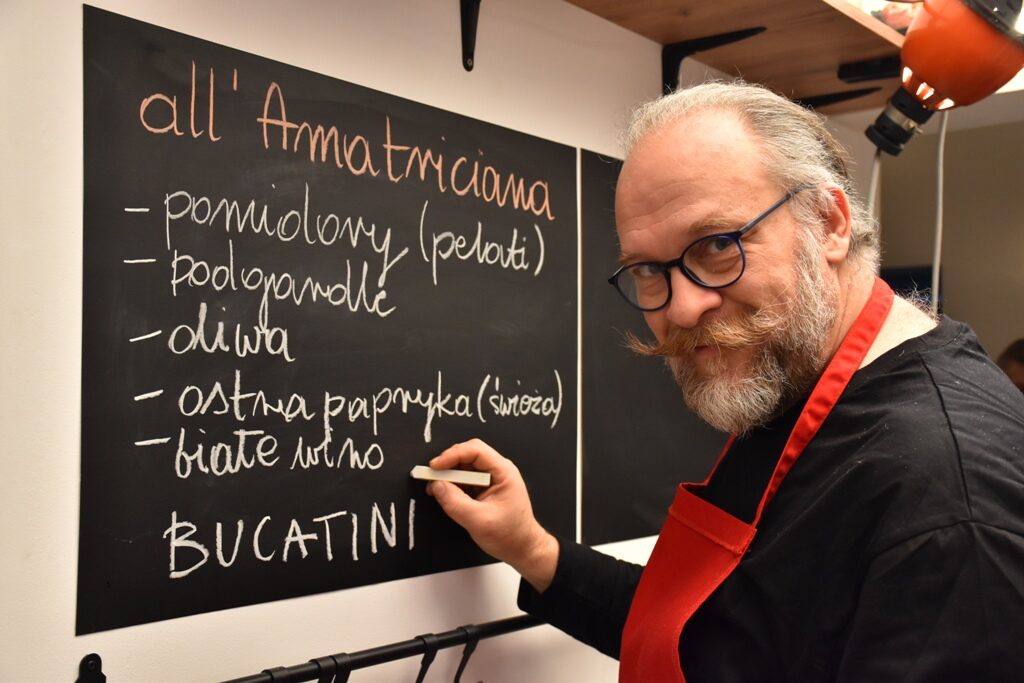 all'Amatriciana
- pomidory (pelati)
- podgardle
- oliwa
- ostra papryka (świeża)
- białe wino
BUCATINI